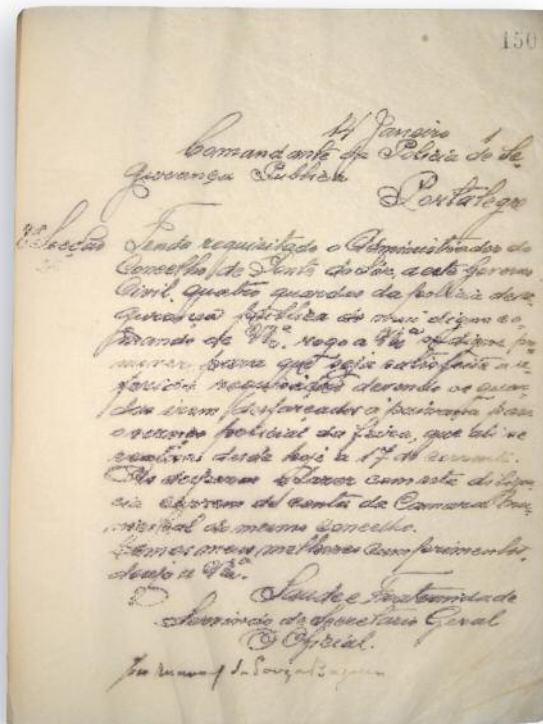 150
14 Janeiro 1
Comandante da Policia de Se-
gurança Publica
Portalegre
2ª Secção Tendo requisitado o Administrador do
Concelho de Ponte do Sôr, a este Governo
Civil, quatro guardas da policia de se-
gurança publica do mui digno co-
mando de V. Ex.ª rogo a V. Ex.ª se digne
para que seja satisfeita a re-
ferida requisição devendo os guar-
das irem disfarçados á paisana para
o serviço policial da feira, que ali se
realisa desde hoje a 17 do corrente.
As despesas a fazer com esta diligen-
cia correm de conta da Camara Mu-
nicipal do mesmo concelho.
Com os meus melhores cumprimentos
desejo a V. Ex.ª
Saude e Fraternidade
Servindo de Secretario Geral
O Oficial.
de Souza